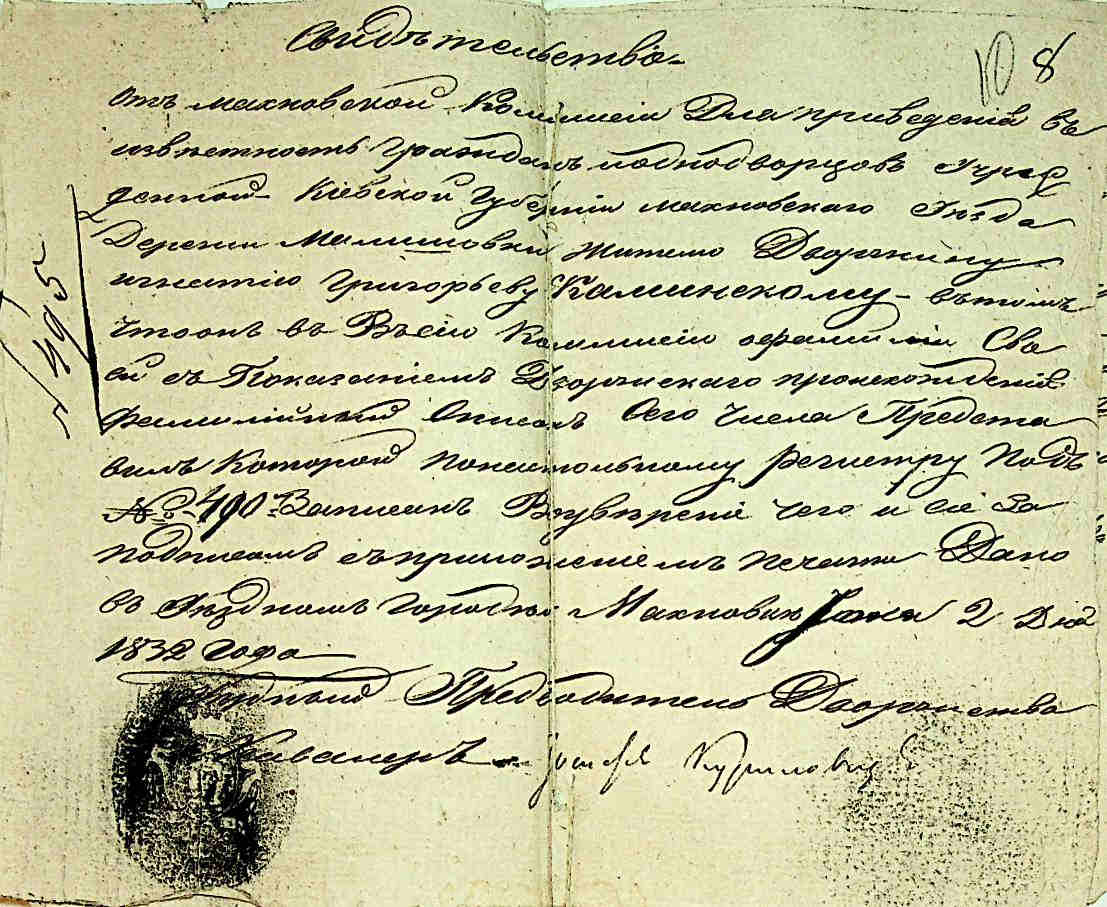 Свидѣтельство
10 8
Отъ Махновской Коммисіи Для приведенія въ
извѣстность Гражданъ иоднодворцовъ Учреж
денной Кіевской Губерніи Махновскаго Уѣзда
Деревни Малишовки Жителю Дворянину
игнатію Григорьеву Каминскому въ томъ
Что онъ въ Въсію Коммисію офамиліи Сво
ей съ Показаніемъ Дворянскаго происхожденія
Фамилійный Списокъ Сего Числа Предста
вилъ Которой по настольному регистру Подъ
№ 490 Записанъ Вувѣреніе чего и сіе За
подписомъ съ приложеніемъ печати Дано
въ Уѣздномъ Городѣ Махновки 2 Дня
1832 Года
№ 495
Предводитель Дворянства
Кавалеръ